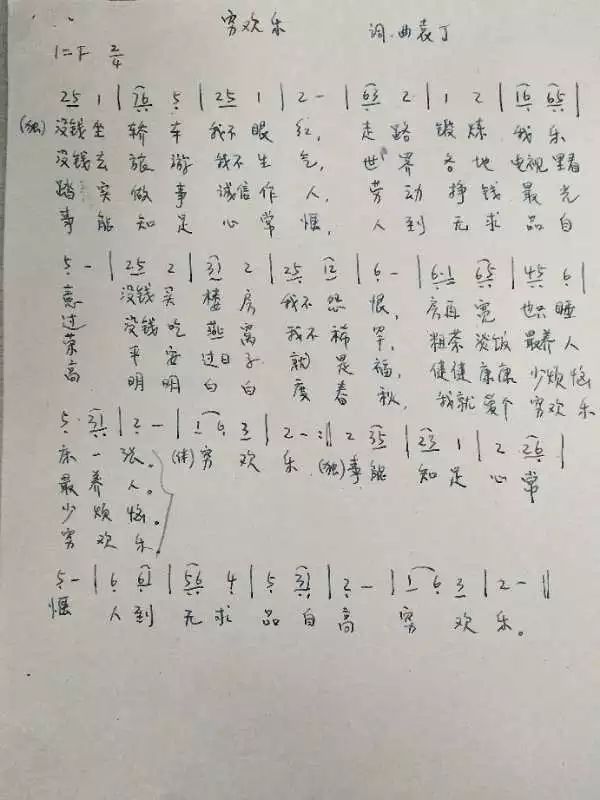 穷欢乐
词.曲袁丁
1=F 2/4
25 1 | 76 5 | 25 1 | 2 - | 63 2 | 1 2 | 16 65 |
(独) 没钱坐 轿车 我不眼红, 走路锻炼 我乐
没钱去 旅游 我不生气, 世界各地 电视里看
踏实做事 诚信作人, 劳动挣钱最光
事能知足心常惬, 人到无求品自
5 - | 25 2 | 31 2 | 25 12 | 6 - | 6·1 65 | 45 6 |
意 没钱买楼房 我不怨恨, 房再宽 也只睡
过 没钱吃燕窝 我不稀罕, 粗茶淡饭 最养人
荣 平安过日子 就是福, 健健康康 少烦恼
高 明明白白 度春秋, 我就爱个 穷欢乐
5 31 | 2 - | 1 6 3 | 2 - :‖ 2 35 | 23 1 | 2 26 |
床一张。 (伴) 穷欢乐 (独) 事能知足心常
最养人。
少烦恼。
穷欢乐。
5 - | 6 61 | 56 4 | 5 31 | 2 - | 1 6 3 | 2 - ‖
惬 人到无求品自高 穷欢乐。